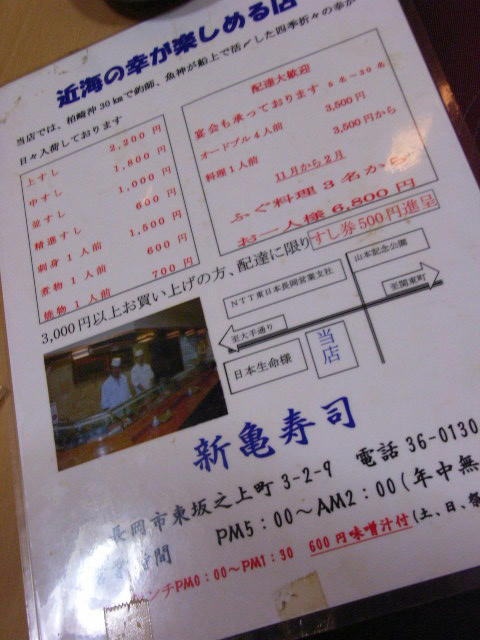 近海の幸が楽しめる店
当店では、柏崎沖30kmで釣師、魚神が船上で活〆した四季折々の幸が
日々入荷しております
上すし 2,200円
中すし 1,800円
並すし 1,000円
精進すし 600円
刺身1人前 1,500円
煮物1人前 600円
焼物1人前 700円
配達大歓迎
宴会も承っております 5名~30名
オードブル4人前 3,500円
料理1人前 3,500円から
11月から2月
ふぐ料理3名から
お一人様6,800円
3,000円以上お買い上げの方、配達に限りすし券500円進呈
NTT東日本長岡営業支社
山本記念公園
至大手通り
至関東町
日本生命様
当店
新亀寿司
長岡市東坂之上町3-2-9 電話36-0130
時間 PM5:00~AM2:00(年中無
ンチPM0:00~PM1:30 600円味噌汁付(土、日、祭